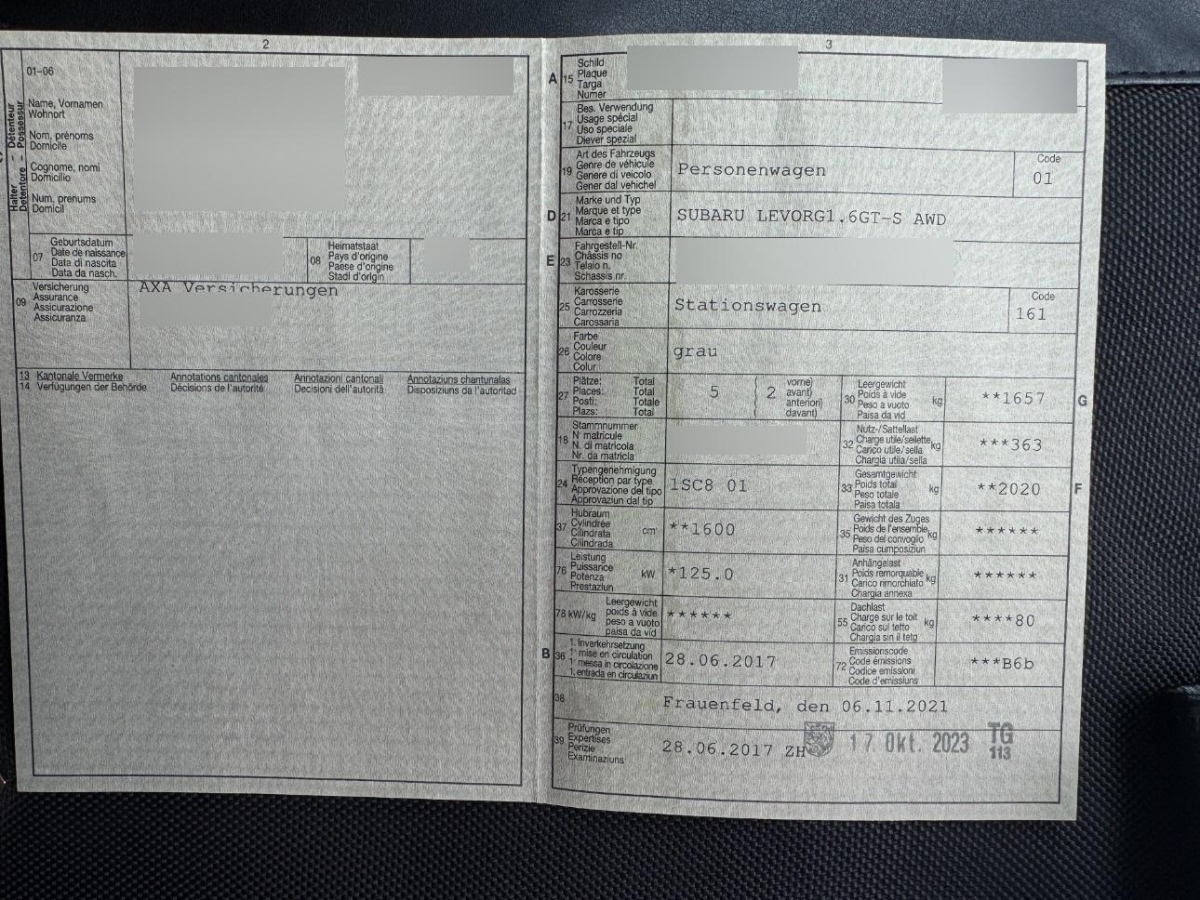 2
01-06
Halter – Détenteur
Detentore – Possessur
Name, Vornamen
Wohnort
Nom, prénoms
Domicile
Cognome, nomi
Domicilio
Num, prenums
Domicil
07
Geburtsdatum
Date de naissance
Data di nascita
Data da nasch.
08
Heimatstaat
Pays d'origine
Paese d'origine
Stadi d'origin
09
Versicherung
Assurance
Assicurazione
Assicuranza
AXA Versicherungen
13 Kantonale Vermerke Annotations cantonales Annotazioni cantonali Annotaziuns chantunalas
14 Verfügungen der Behörde Décisions de l'autorité Decisioni dell'autorità Disposiziuns da l'autoritad
3
A 15
Schild
Plaque
Targa
Numer
17
Bes. Verwendung
Usage spécial
Uso speciale
Diever spezial
19
Art des Fahrzeugs
Genre de véhicule
Genere di veicolo
Gener dal vehichel
Personenwagen
Code
01
D 21
Marke und Typ
Marque et type
Marca e tipo
Marca e tip
SUBARU LEVORG1.6GT-S AWD
E 23
Fahrgestell-Nr.
Châssis no
Telaio n.
Schassis nr.
25
Karosserie
Carrosserie
Carrozzeria
Carossaria
Stationswagen
Code
161
26
Farbe
Couleur
Colore
Colur
grau
27
Plätze: Total
Places: Total
Posti: Totale
Plazs: Total
5
2
vorne)
avant)
anteriori)
davant)
30
Leergewicht
Poids à vide
Peso a vuoto
Paisa da vid
kg
**1657
G
18
Stammnummer
N matricule
N. di matricola
Nr. da matricla
32
Nutz-/Sattellast
Charge utile/sellette
Carico utile/sella
Chargia utila/sella
kg
***363
24
Typengenehmigung
Réception par type
Approvazione del tipo
Approvaziun dal tip
1SC8 01
33
Gesamtgewicht
Poids total
Peso totale
Paisa totala
kg
**2020
F
37
Hubraum
Cylindrée
Cilindrata
Cilindrada
cm
**1600
35
Gewicht des Zuges
Poids de l'ensemble
Peso del convoglio
Paisa cumposiziun
kg
******
76
Leistung
Puissance
Potenza
Prestaziun
kW
*125.0
31
Anhängelast
Poids remorquable
Carico rimorchiato
Chargia annexa
kg
******
78 kW/kg
Leergewicht
poids à vide
peso a vuoto
paisa da vid
******
55
Dachlast
Charge sur le toit
Carico sul tetto
Chargia sin il tetg
kg
****80
B 36
1. Inverkehrsetzung
1' mise en circulation
1' messa in circolazione
1. entrada en circulaziun
28.06.2017
72
Emissionscode
Code émissions
Codice emissioni
Code d'emissiuns
***B6b
38
Frauenfeld, den 06.11.2021
39
Prüfungen
Expertises
Perizie
Examinaziuns
28.06.2017 ZH
17. Okt. 2023
TG
113